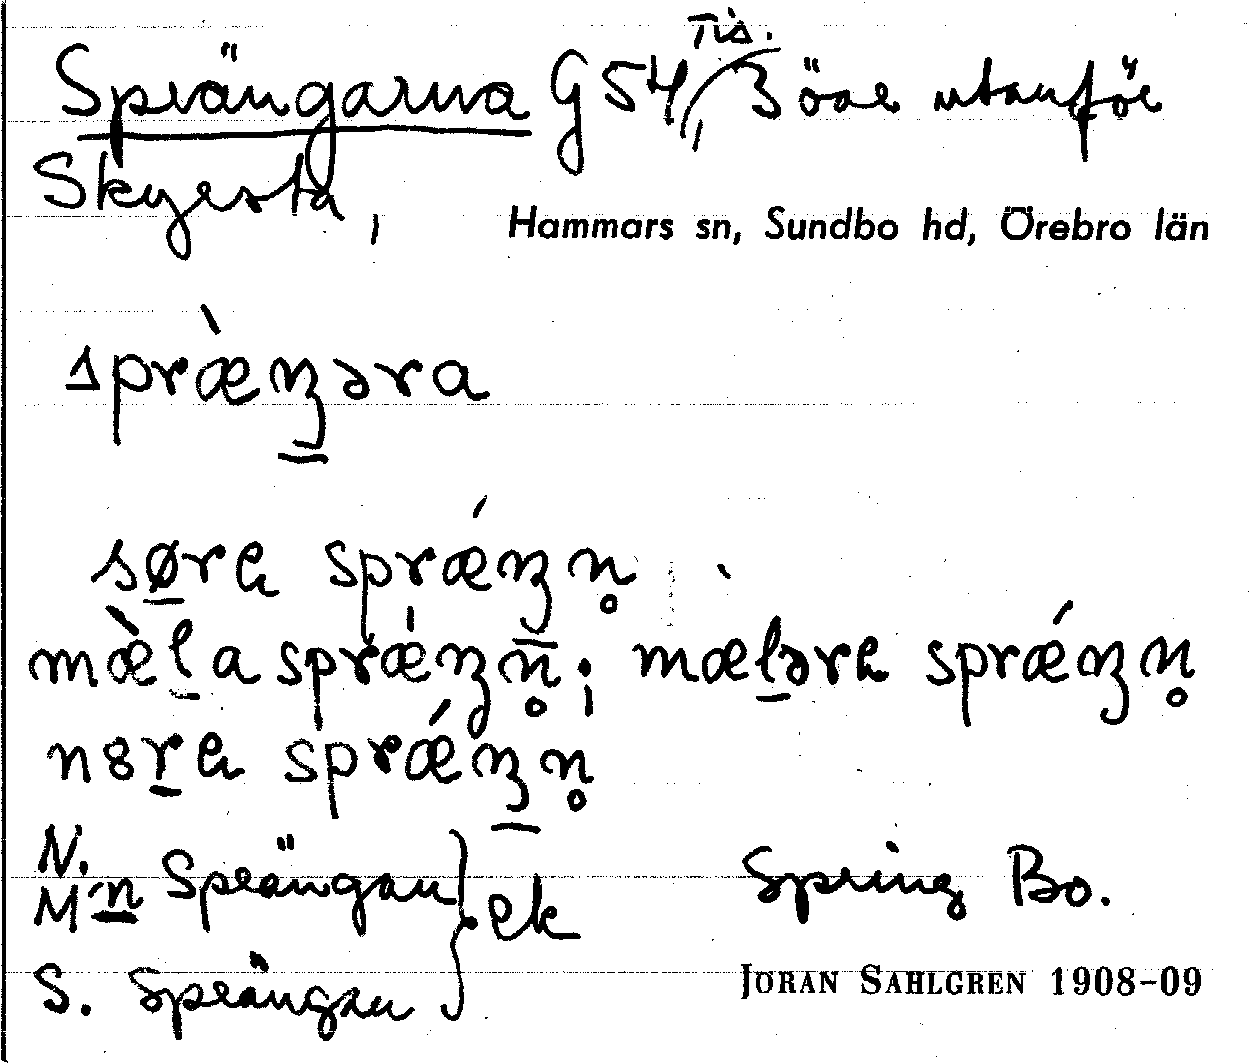 Sprängarna G 54, Tis. 3 öar utanför
Skyrsta,
Hammars sn, Sundbo hd, Örebro län
spræ̀ŋəra
sørɐ sprǽŋn̥
mæ̀l̠a sprǽŋn̥; mæl̠ərɐ sprǽŋn̥
n8r̠ɐ sprǽŋn̥
N.
M-n Sprängan } ek
S. Sprängan
Spring Bo.
JÖRAN SAHLGREN 1908–09